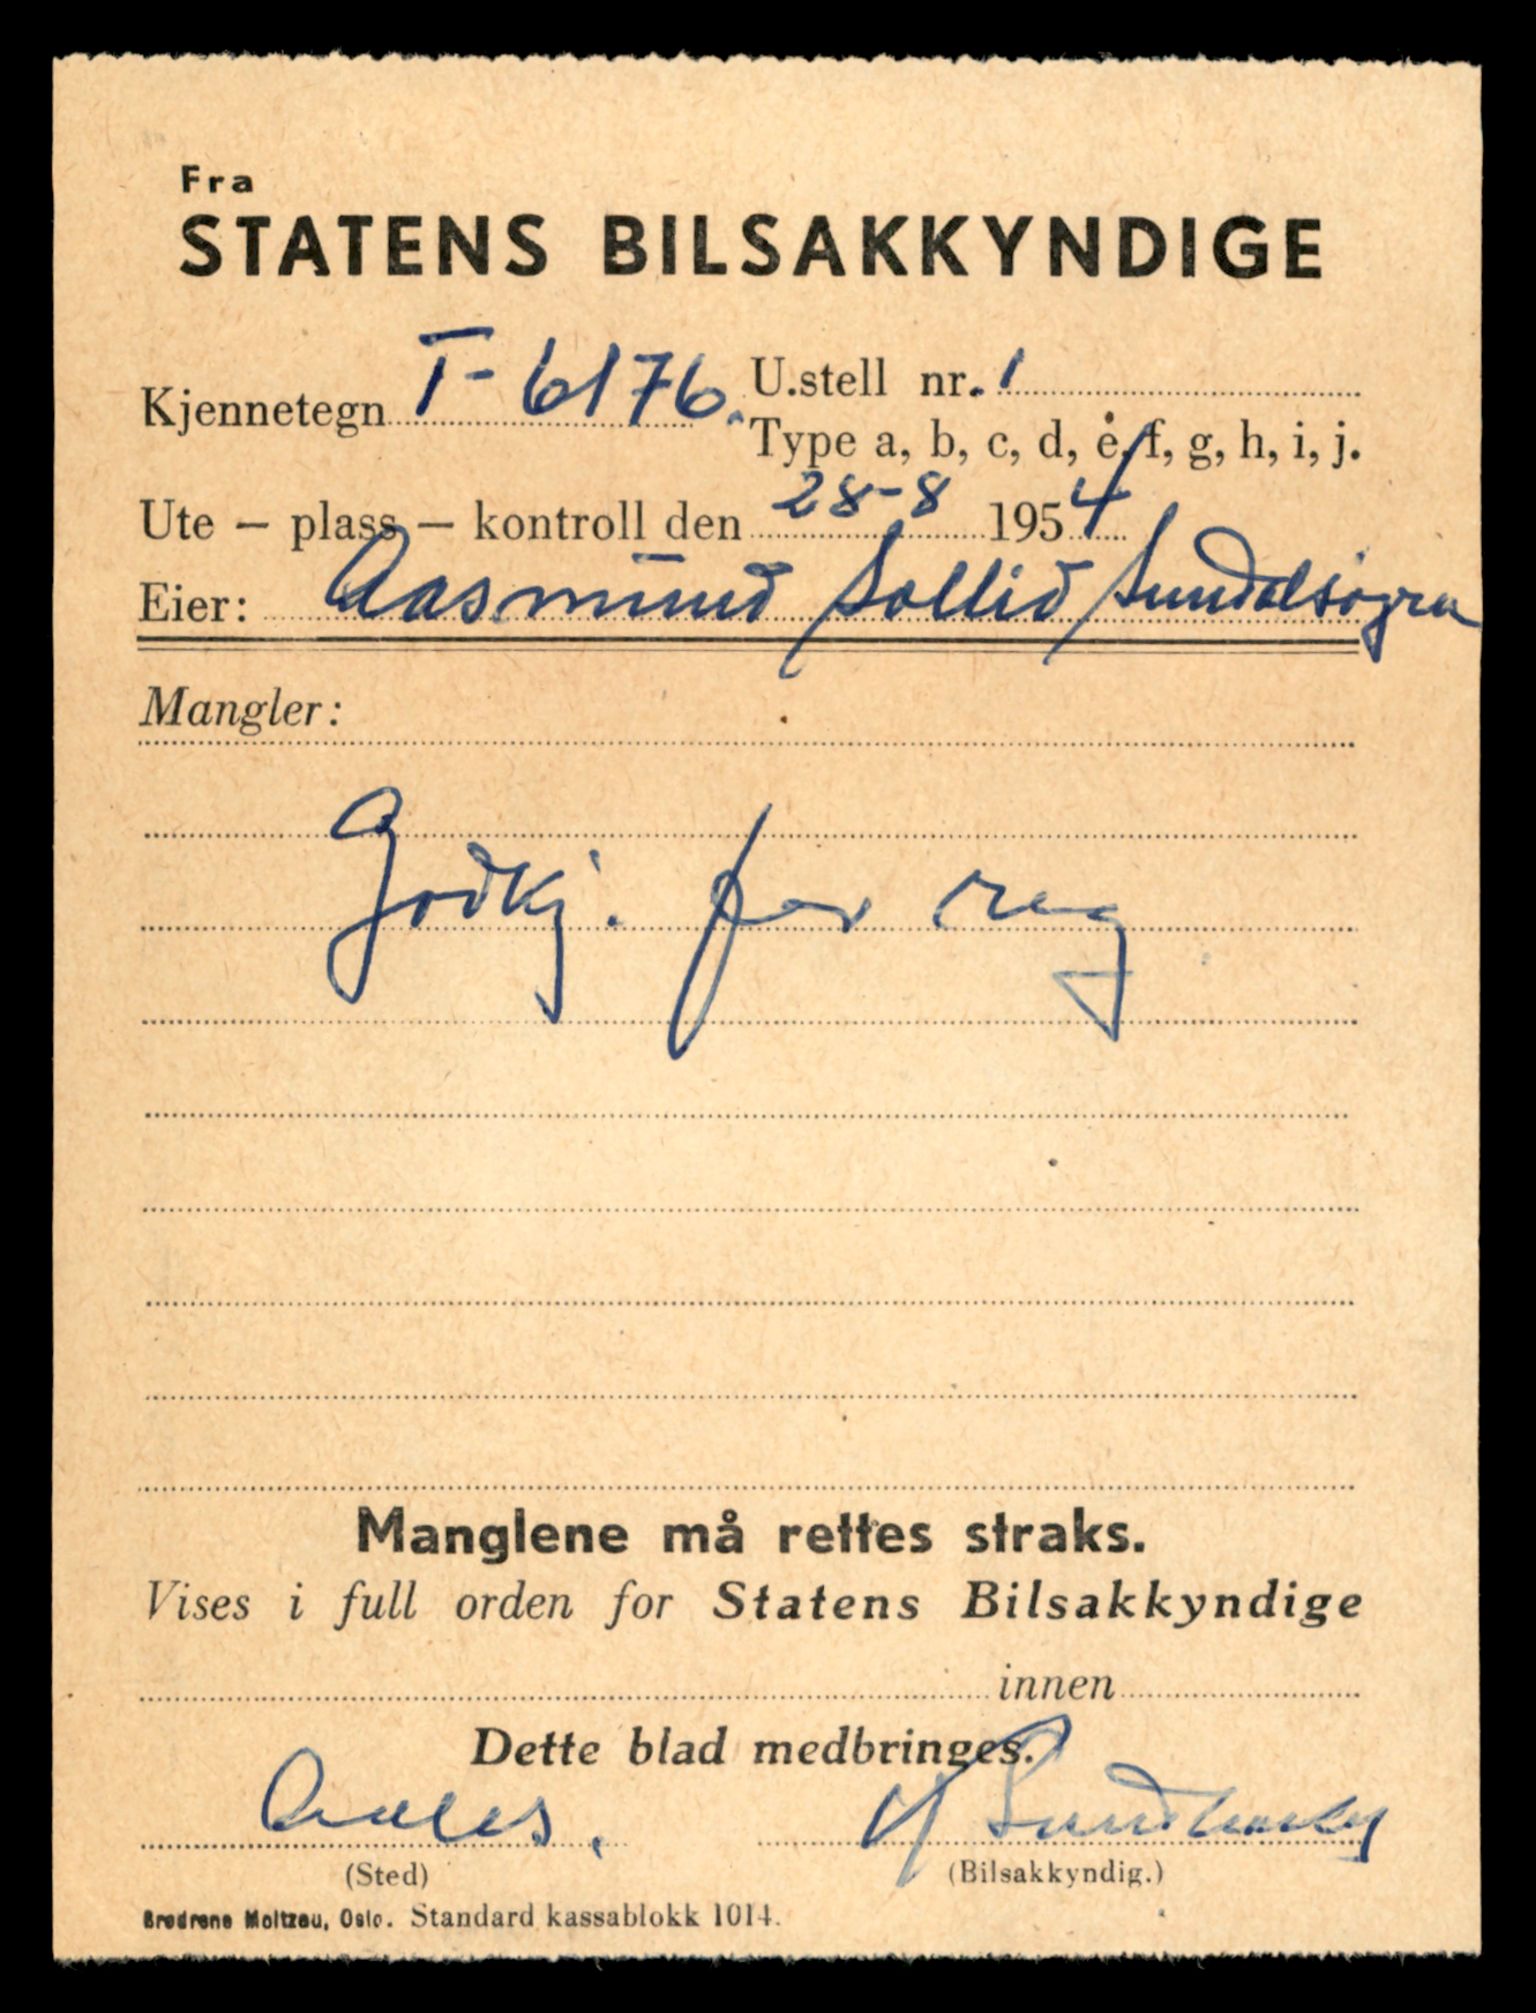 Fra
STATENS BILSAKKYNDIGE
Kjennetegn T-6176. U.stell nr. 1
Type a, b, c, d, e, f, g, h, i, j.
Ute – plass – kontroll den 28-8 1954
Eier: Aasmund Sollid Sundalsøgra
Mangler:
Godkj. for reg
Manglene må rettes straks.
Vises i full orden for Statens Bilsakkyndige
innen
Dette blad medbringes.
(Sted) (Bilsakkyndig.)
Brødrene Moltzau, Oslo. Standard kassablokk 1014.